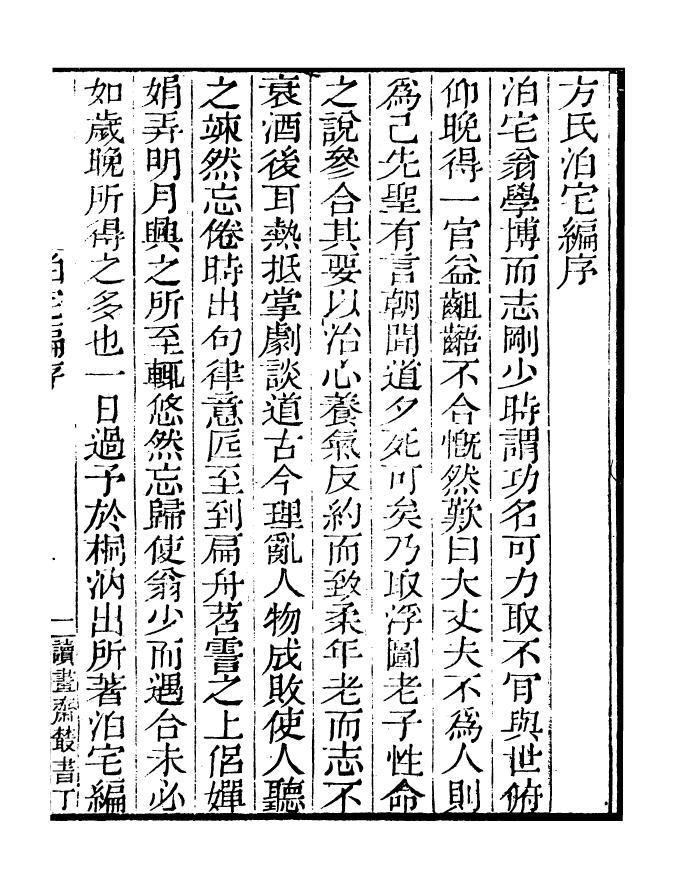 方氏泊宅編序
泊宅翁學博而志剛少時謂功名可力取不肎與世俯
仰晚得一官益齟齬不合慨然歎曰大丈夫不爲人則
爲己先聖有言朝聞道夕死可矣乃取浮圖老子性命
之說參合其要以治心養氣反約而致柔年老而志不
衰酒後耳熱抵掌劇談道古今理亂人物成敗使人聽
之竦然忘倦時出句律意匠至到扁舟苕霅之上侶嬋
娟弄明月興之所至輒悠然忘歸使翁少而遇合未必
如歲晚所得之多也一日過予於桐汭出所著泊宅編
泊宅編序 一 讀畫齋叢書丁